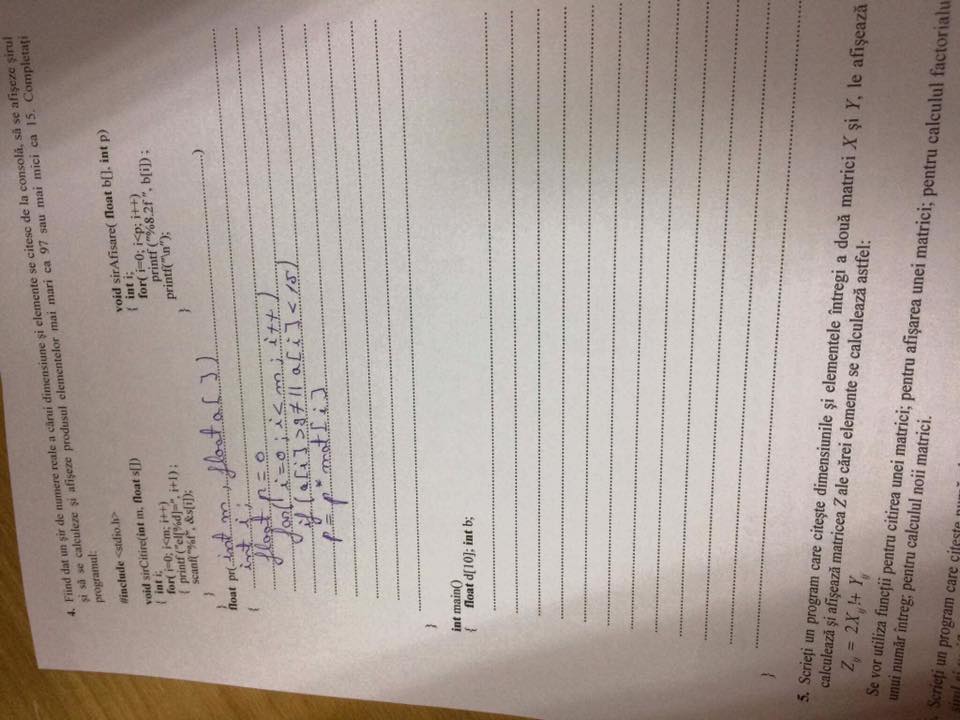 4. Fiind dat un șir de numere reale a cărui dimensiune și elemente se citesc de la consolă, să se afișeze șirul
și să se calculeze și afișeze produsul elementelor mai mari ca 97 sau mai mici ca 15. Completați
programul:
#include <stdio.h>
void sirCitire(int m, float s[])
{ int i;
for( i=0; i<m; i++)
{ printf ("el[%d]=", i+1) ;
scanf("%f", &s[i]);
}
}
void sirAfisare( float b[], int p)
{ int i;
for( i=0; i<p; i++)
printf ("%8.2f ", b[i]) ;
printf("\n");
}
float pr( int m, float a[ ] ) )
{ int i ;
float p = 0
for( i=0 ; i<m ; i++ )
if ( a[i] >97 || a[i] < 15 )
p = p * mat[i]
}
int main()
{ float d[10]; int b;
}
5. Scrieți un program care citește dimensiunile și elementele întregi a două matrici X și Y, le afișează
calculează și afișează matricea Z ale cărei elemente se calculează astfel:
Zij = 2Xij!+ Yij
Se vor utiliza funcții pentru citirea unei matrici; pentru afișarea unei matrici; pentru calculul factorialu
unui număr întreg; pentru calculul noii matrici.
Scrieți un program care citește